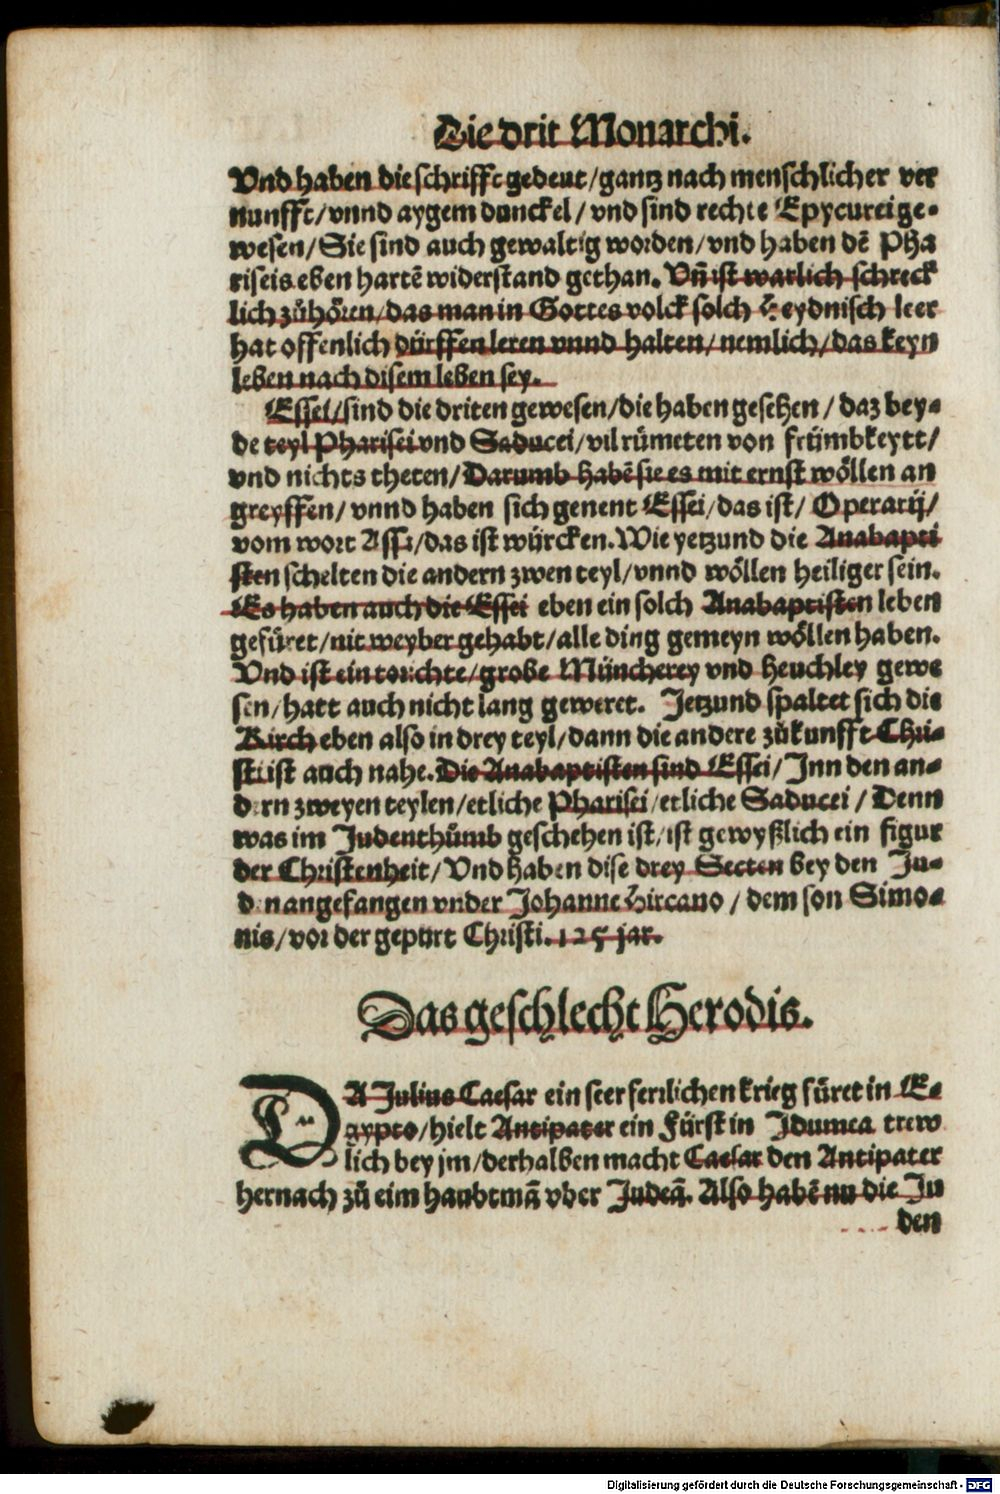 Die drit Monarchi.
Vnd haben die schrifft gedeut/gantz nach menschlicher ver
nunfft/vnnd aygem dunckel/vnd sind rechte Epycurei ge-
wesen/Sie sind auch gewaltig worden/vnd haben dē Pha
riseis eben hartē widerstand gethan. Vñ ist warlich schreck
lich zůhören/das man in Gottes volck solch heydnisch leer
hat offenlich dürffen leren vnnd halten/nemlich/das keyn
leben nach disem leben sey.
Essei/sind die driten gewesen/die haben gesehen/daz bey-
de teyl Pharisei vnd Saducei/vil rümeten von frümbkeytt/
vnd nichts theten/Darumb habē sie es mit ernst wöllen an
greyffen/vnnd haben sich genent Essei/das ist/Operarij/
vom wort Assa/das ist würcken. Wie yetzund die Anabapti
sten schelten die andern zwen teyl/vnnd wöllen heiliger sein.
Es haben auch die Essei eben ein solch Anabaptisten leben
gefüret/nit weyber gehabt/alle ding gemeyn wöllen haben.
Vnd ist ein torichte/grobe Müncherey vnd heuchley gewe
sen/hatt auch nicht lang geweret. Jetzund spaltet sich die
Kirch eben also in drey teyl/dann die andere zůkunfft Chri-
sti ist auch nahe. Die Anabaptisten sind Essei/Inn den an-
dern zweyen teylen/etliche Pharisei/etliche Saducei/Denn
was im Judenthůmb geschehen ist/ist gewyßlich ein figur
der Christenheit/Vnd haben dise drey Secten bey den Ju-
den angefangen vnder Johanne Hircano/dem son Simo-
nis/vor der gepurt Christi. 125 jar.
Das geschlecht Herodis.
DA Julius Caesar ein seer ferlichen krieg füret in E-
gypto/hielt Antipater ein Fürst in Idumea trew
lich bey jm/derhalben macht Caesar den Antipater
hernach zů eim haubtmā vber Judeā. Also habē nu die Ju
den
Digitalisierung gefördert durch die Deutsche Forschungsgemeinschaft - DFG